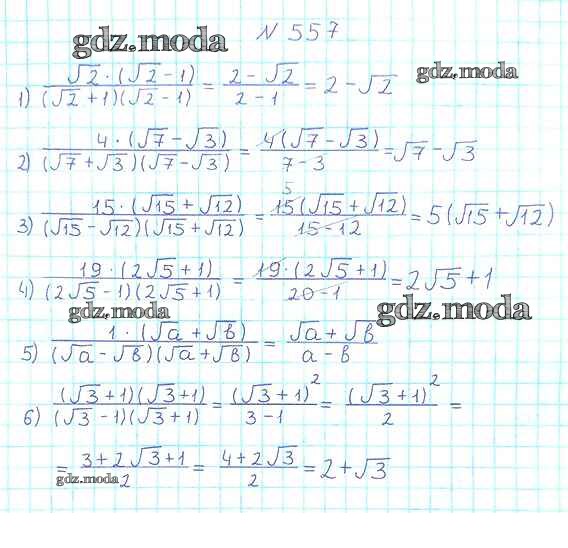 gdz.moda
N 557
gdz.moda
1) √2·(√2-1)/(√2+1)(√2-1) = 2-√2/2-1 = 2-√2
2) 4·(√7-√3)/(√7+√3)(√7-√3) = 4(√7-√3)/7-3 = √7-√3
3) 15·(√15+√12)/(√15-√12)(√15+√12) = 5 15(√15+√12)/15-12 = 5(√15+√12)
4) 19·(2√5+1)/(2√5-1)(2√5+1) = 19·(2√5+1)/20-1 = 2√5+1
gdz.moda
gdz.moda
5) 1·(√a+√b)/(√a-√b)(√a+√b) = √a+√b/a-b
6) (√3+1)(√3+1)/(√3-1)(√3+1) = (√3+1)²/3-1 = (√3+1)²/2 =
= 3+2√3+1/2 = 4+2√3/2 = 2+√3
gdz.moda